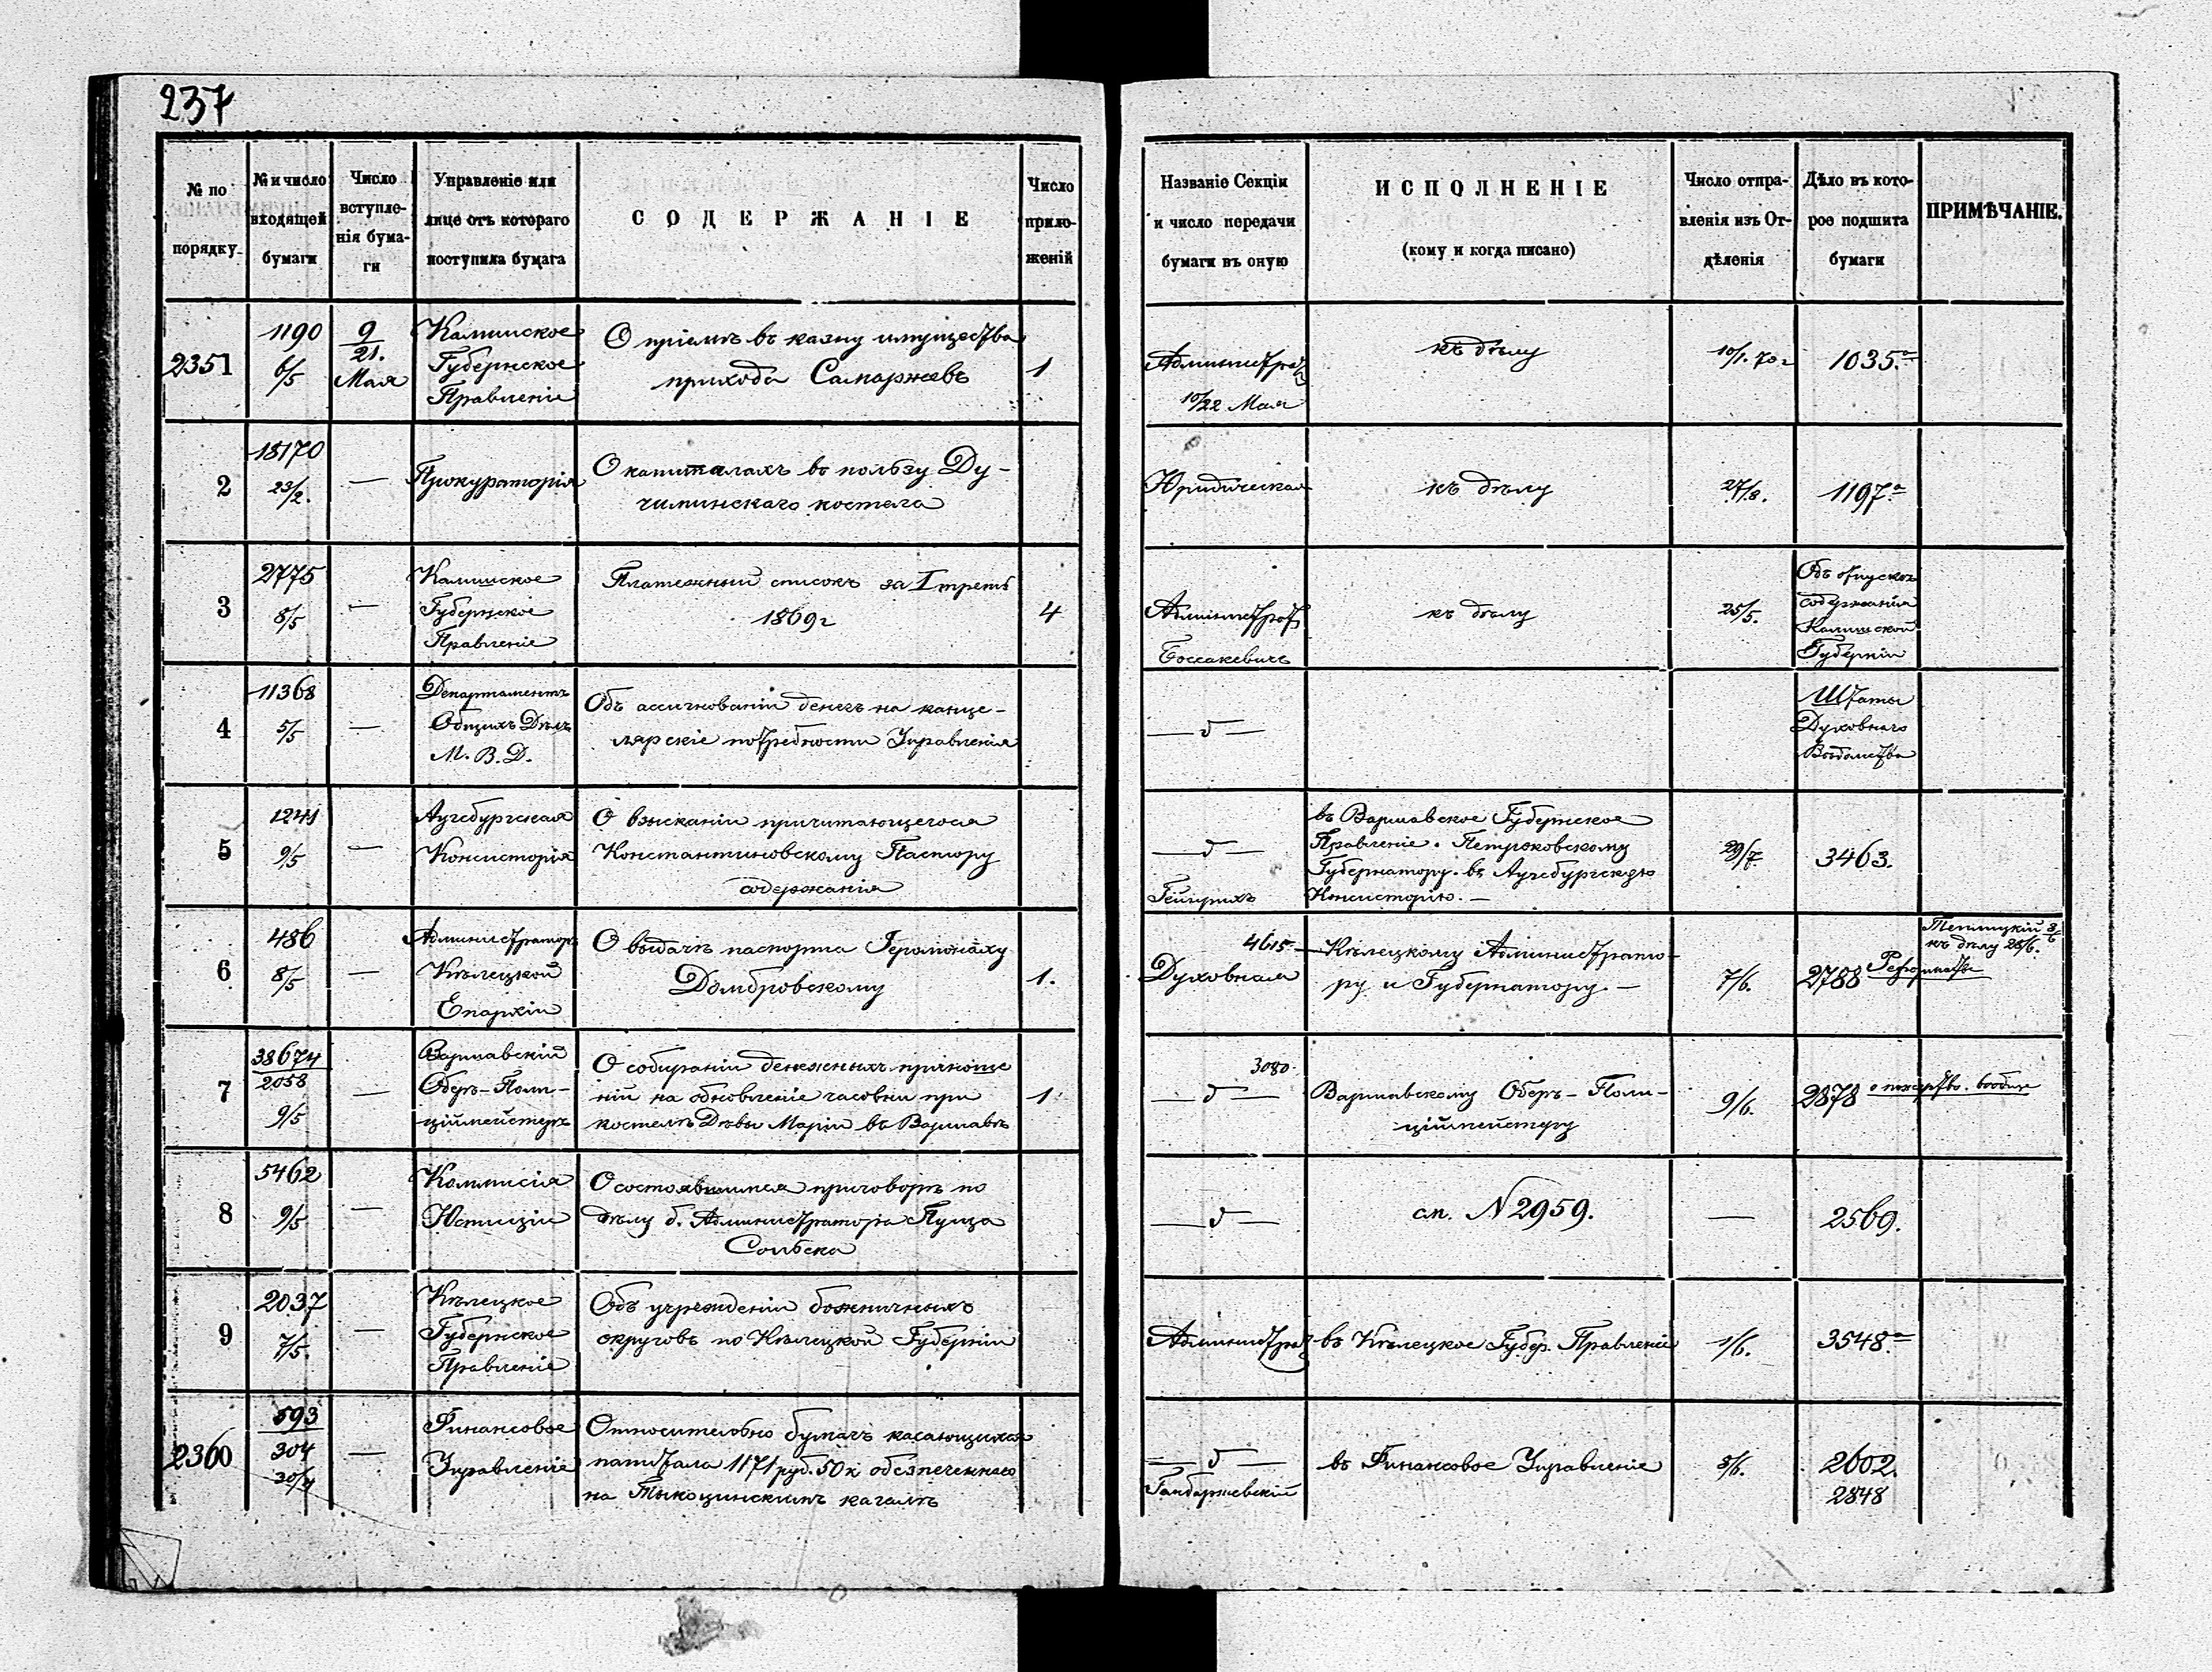 237
№ по
порядку
№ и число
входящей
бумаги
Число
вступле-
нія бума-
ги
Управленіе или
лице отъ котораго
поступила бумага
СОДЕРЖАНІЕ
Число
прило-
женій
Названіе Секціи
и число передачи
бумаги въ оную
ИСПОЛНЕНІЕ
(кому и когда писано)
Число отпра-
вленія изъ От-
дѣленія
Дѣло въ кото-
рое подшита
бумаги
ПРИМѢЧАНІЕ.
2351
1190
6/5
9/21.
Мая
Калишское
Губернское
Правленіе
О пріемѣ въ казну имущества
прихода Сапаржевъ
1
Администрат
10/22 Мая
къ дѣлу
10/1. 70 г
1035.а
2
18170
23/2.
—
Прокураторія
О капиталахъ въ пользу Ду-
чиминскаго костела
Юридическая
къ дѣлу
27/8.
1197.а
3
2775
8/5
—
Калишское
Губернское
Правленіе
Платежный списокъ за I треть
1869 г
4
Администрат
Боссакевичъ
къ дѣлу
25/5.
Объ отпускахъ
содержанія
Калишской
Губерніи
4
11368
5/5
—
Департаментъ
Общихъ Дѣлъ
М. В. Д.
Объ ассигнованіи денегъ на канце-
лярскіе потребности Управленія
— д —
Штаты
Духовнаго
Вѣдомства
5
1241
9/5
—
Аугсбургская
Консисторія
О взысканіи причитающегося
Константиновскому Пастору
содержанія
— д —
Гейнрихъ
въ Варшавское Губернское
Правленіе. Петроковскому
Губернатору. въ Аугсбургскую
Консисторію. —
29/7
3463.
6
486
8/5
—
Администраторъ
Кѣлецкой
Епархіи
О выдачѣ паспорта Іеромонаху
Домбровскому
1.
4615
Духовная
Кѣлецкому Администрато-
ру и Губернатору. —
7/6.
2788
къ дѣлу 28/6.
7
38674
2058
9/5
—
Варшавскій
Оберъ-Поли-
ціймейстеръ
О собираніи денежныхъ приноше
ній на обновленіе часовни при
костелѣ Дѣвы Маріи въ Варшавѣ
1
3080.
— д —
Варшавскому Оберъ-Поли-
ціймейстеру
9/6.
2878 о пожертво. вообще
8
5462
9/5
—
Коммисія
Юстиціи
О состоявшимся приговорѣ по
дѣлу б. Администратора Пунца
— д —
см. № 2959.
—
2569.
9
2037
7/5.
—
Кѣлецкое
Губернское
Правленіе
Объ учрежденіи божничныхъ
округовъ по Кѣлецкой Губерніи
Администрат
въ Кѣлецкое Губер. Правленіе
1/6.
3548.а
2360
593
304
30/4
—
Финансовое
Управленіе
Относительно бумагъ касающихся
капитала 1171 руб. 50 к обезпеченнаго
на Тыкоцинскимъ кагалѣ
— д —
Гандаржевскій
въ Финансовое Управленіе
5/6.
2602.
2848